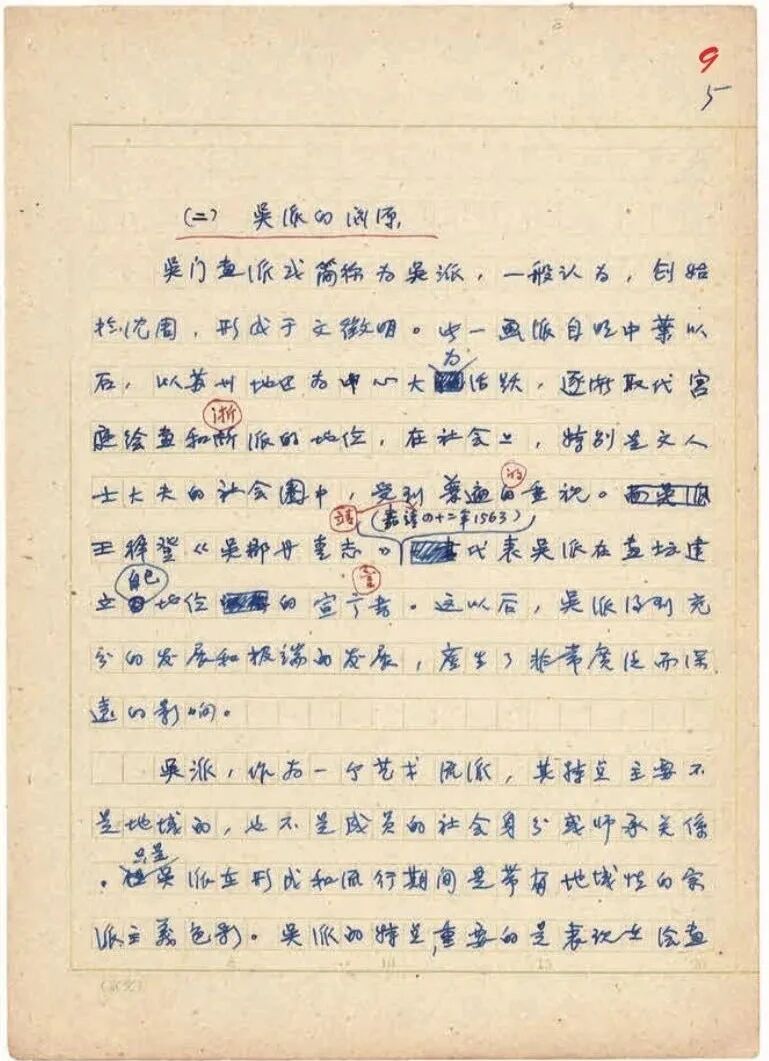 9
5
(二) 吴派的渊源
吴门画派或简称为吴派，一般认为，创始
于沈周，形成于文徵明。此一画派自明中葉以
为
后，以苏州地区为中心大活跃，逐渐取代宫
浙
庭绘画和浙派的地位，在社会上，特别是文人
的
士大夫的社会圈中，受到普遍的重视。而吴派
靖
(嘉靖四十二年1563)
王穉登《吴郡丹青志》代表吴派在画坛建
自己 言
立地位的宣言者。这以后，吴派得到充
分的发展和极端的发展，产生了非常广泛而深
远的影响。
吴派，作为一个艺术流派，其特点主要不
是地域的，也不是成员的社会身分或师承关係
只是
。但吴派在形成和流行期间是带有地域性的宗
派主義色彩。吴派的特点，重要的是表现在绘画